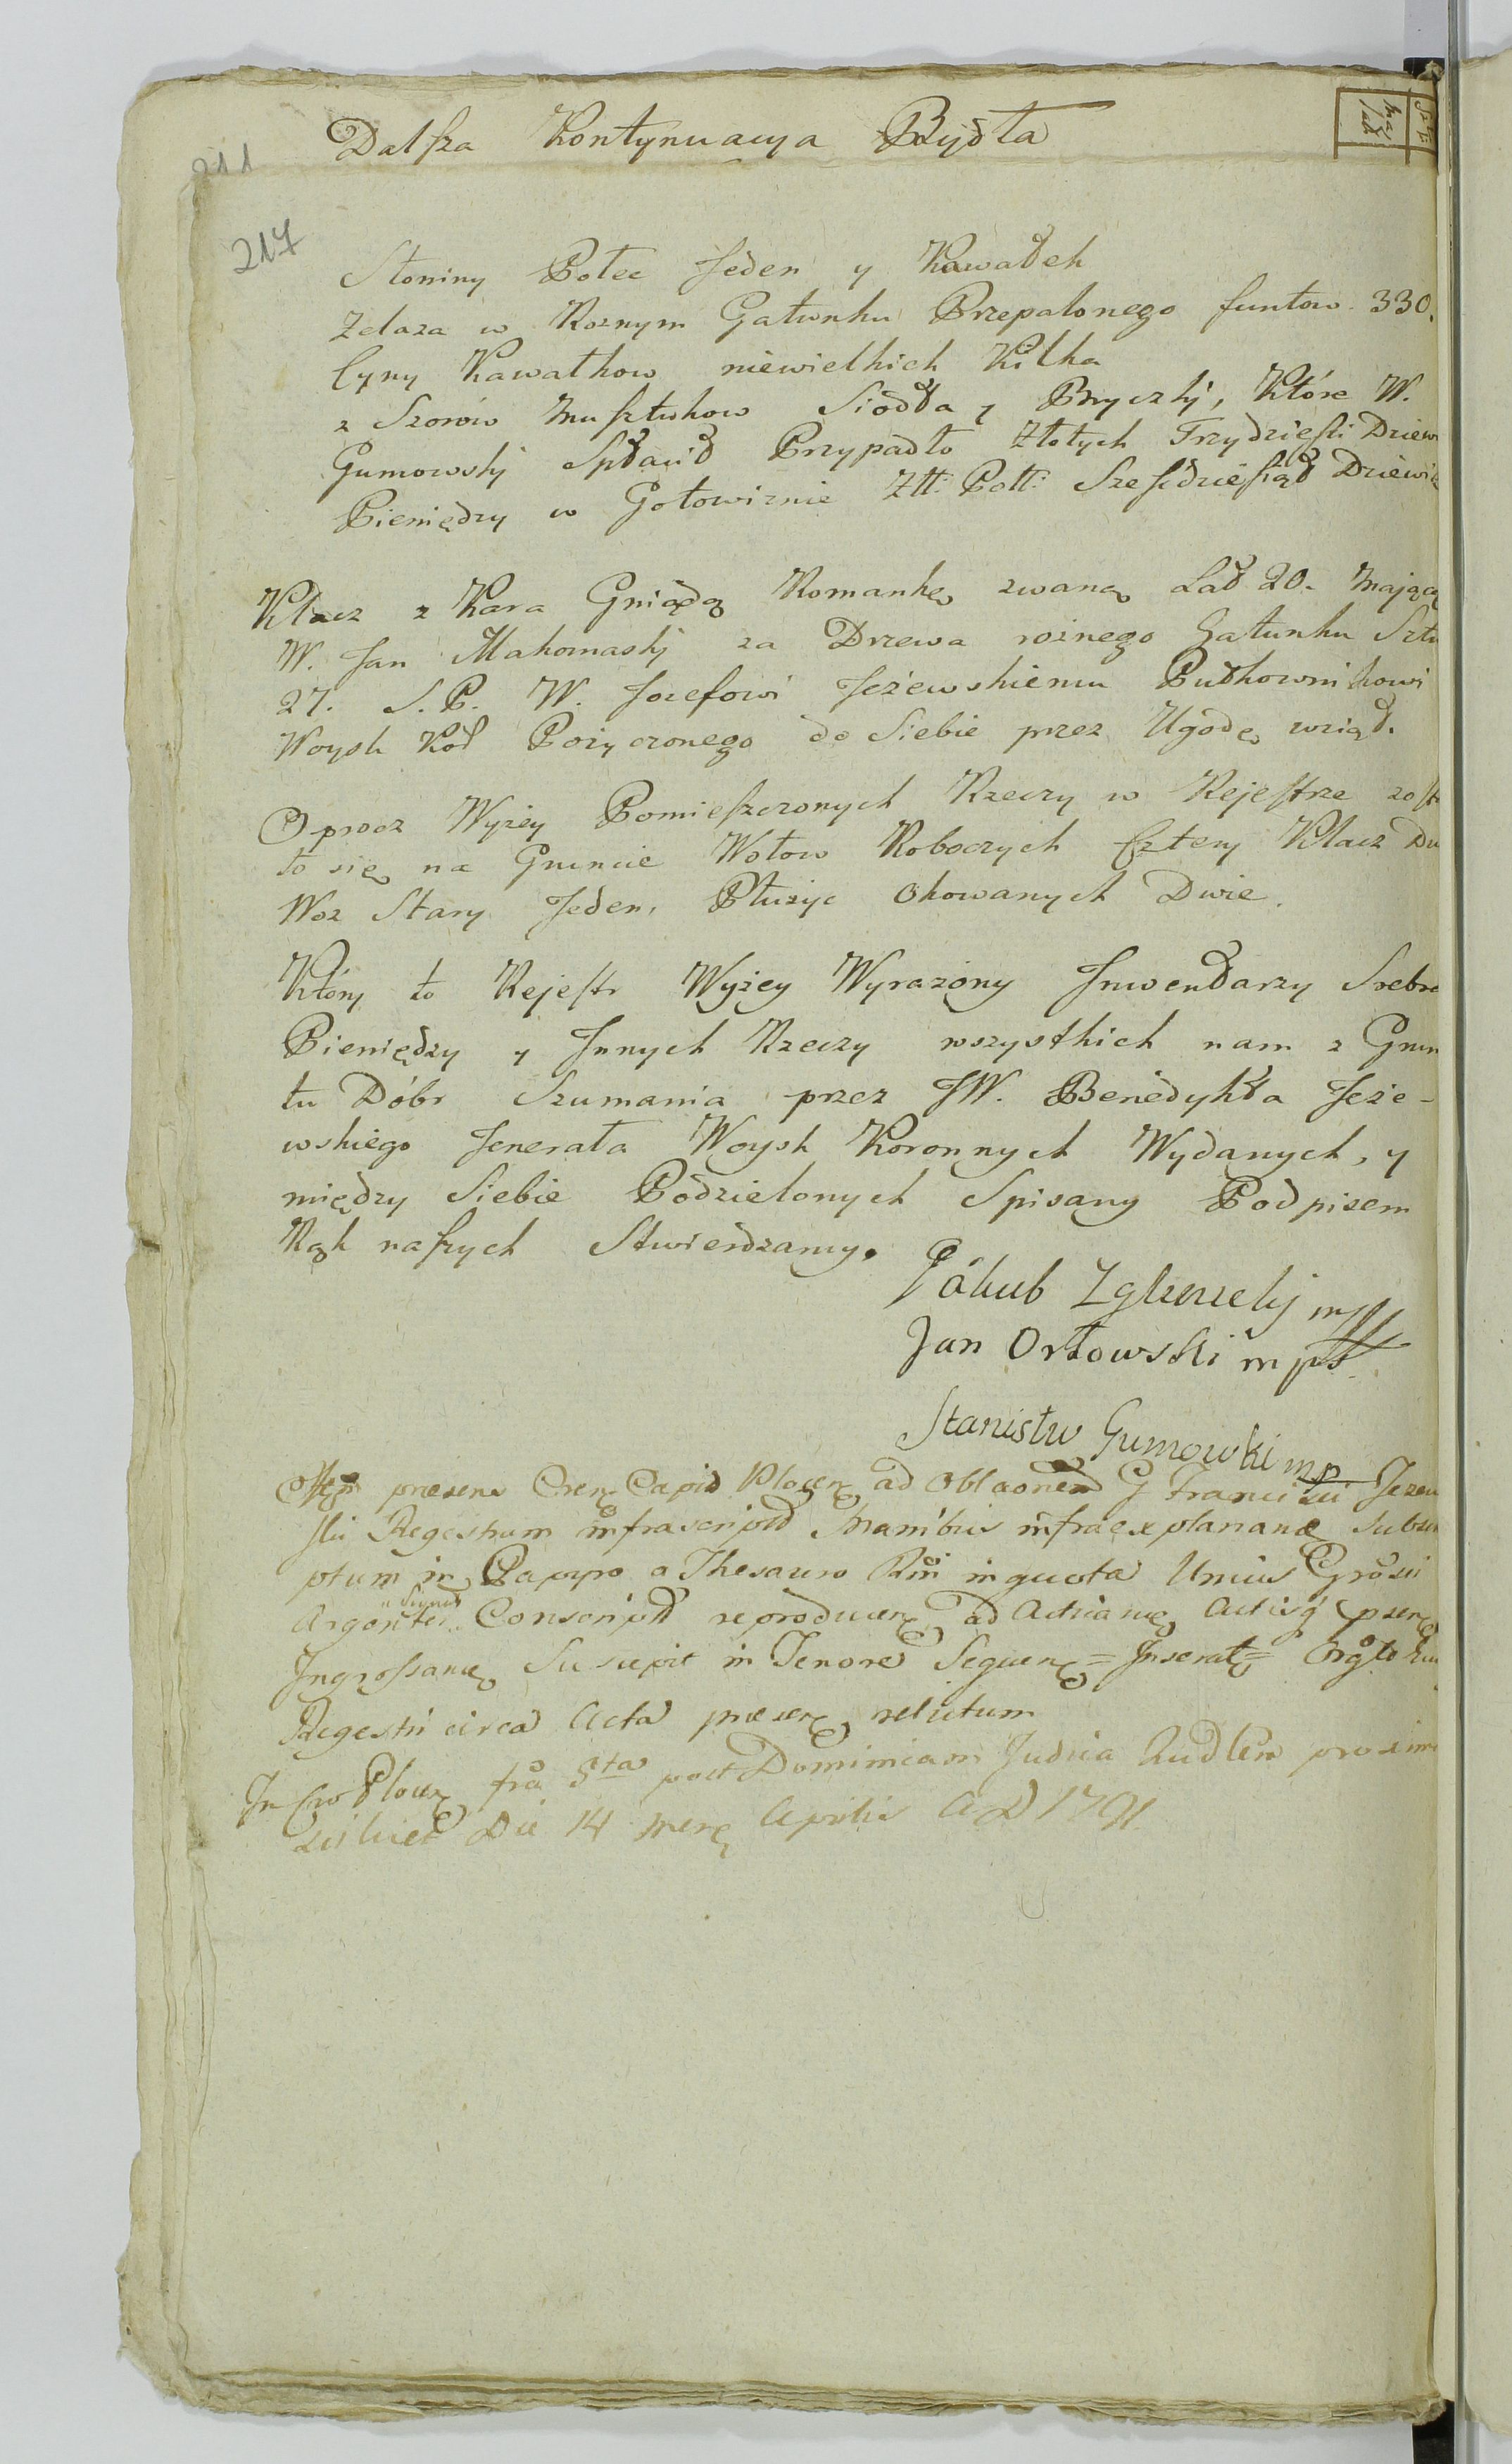 Dalsza Kontynuacya Bydła
211
217
Słoniny Połec Jeden y Kawałek
Zelaza w Roznym Gatunku Przepalonego funtow 330.
Cyny Kawałkow niewielkich Kilka
z Szorów Musztukow Siodła y Bryczki, Które W.
Gumowskj Spłacił Przypadło Złotych Trzydziesci Dziew
Pieniędzy w Gotowiznie Złł: Poll: Szescdziesiąt Dziewię
Klacz z Kara Gniadą Romankę zwaną Lat 20. Mającą
W. Jan Makomaskj za Drzewa rożnego Gatunku Sztu
27. S. P. W. Jozefowi Jeżewskiemu Pułkownikowi
Woysk Kor Pożyczonego do Siebie przez Ugodę wziął.
Oprocz Wyżey Pomieszczonych Rzeczy w Rejestrze zost
to się na Gruncie Wołow Roboczych Cztery Klacz Dw
Woz Stary Jeden, Płużyc Okowanych Dwie.
Ktòry to Rejestr Wyżey Wyrażony Jnwentarzy Srebra
Pieniędzy y Jnnych Rzeczy wszystkich nam z Grun
tu Dóbr Szumania przez JW. Benedykta Jeże-
wskiego Jenerała Woysk Koronnych Wydanych, y
między Siebie Podzielonych Spisany Podpisem
Rąk naszych Stwierdzamy.
Jakub mpp
Jan Orłowski mpp
Stanisłw Gumowski mp
praesens Capit Plocen ad Oblaonem G Francisci Jezew
ski Regestrum infrascriptt Manibus infraexplanane Subscri
ptum in Papyro a Thesauro Rni in quota Unius Grossi
Argentei Signato Conscriptt reproducen ad Acticane Actisq psen
Jngrossane Suscepit in Tenore Sequen = Jnserat = Orglo
Regestri circa Acta praesen relictum
Jn Plocen fra 5ta post Dominicam Judica proxima
scilicet Die 14 Mens Aprilis AD 1791